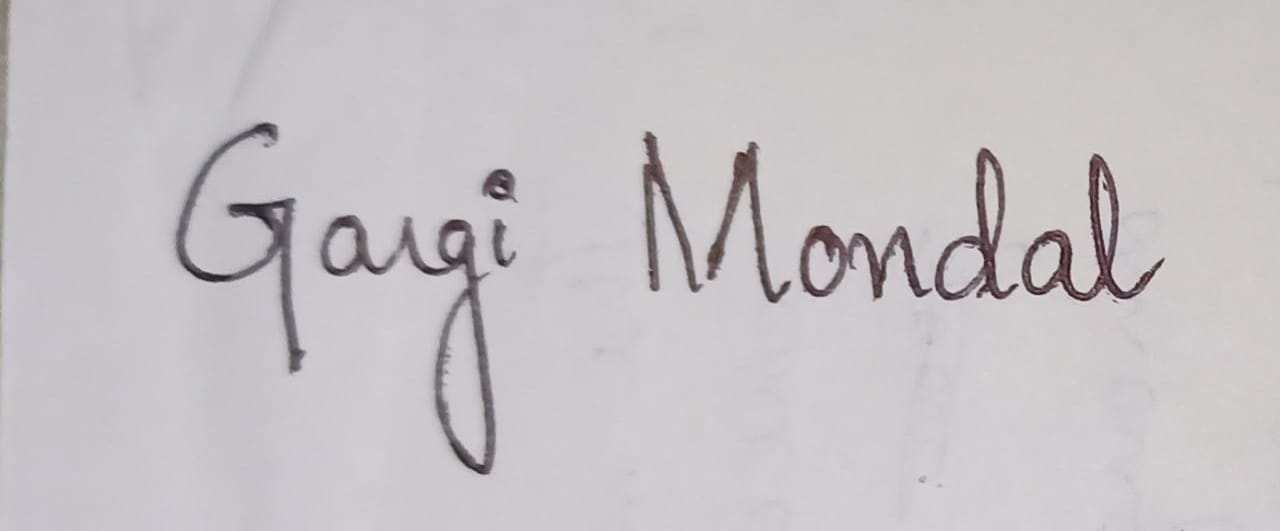 Gargi Mondal